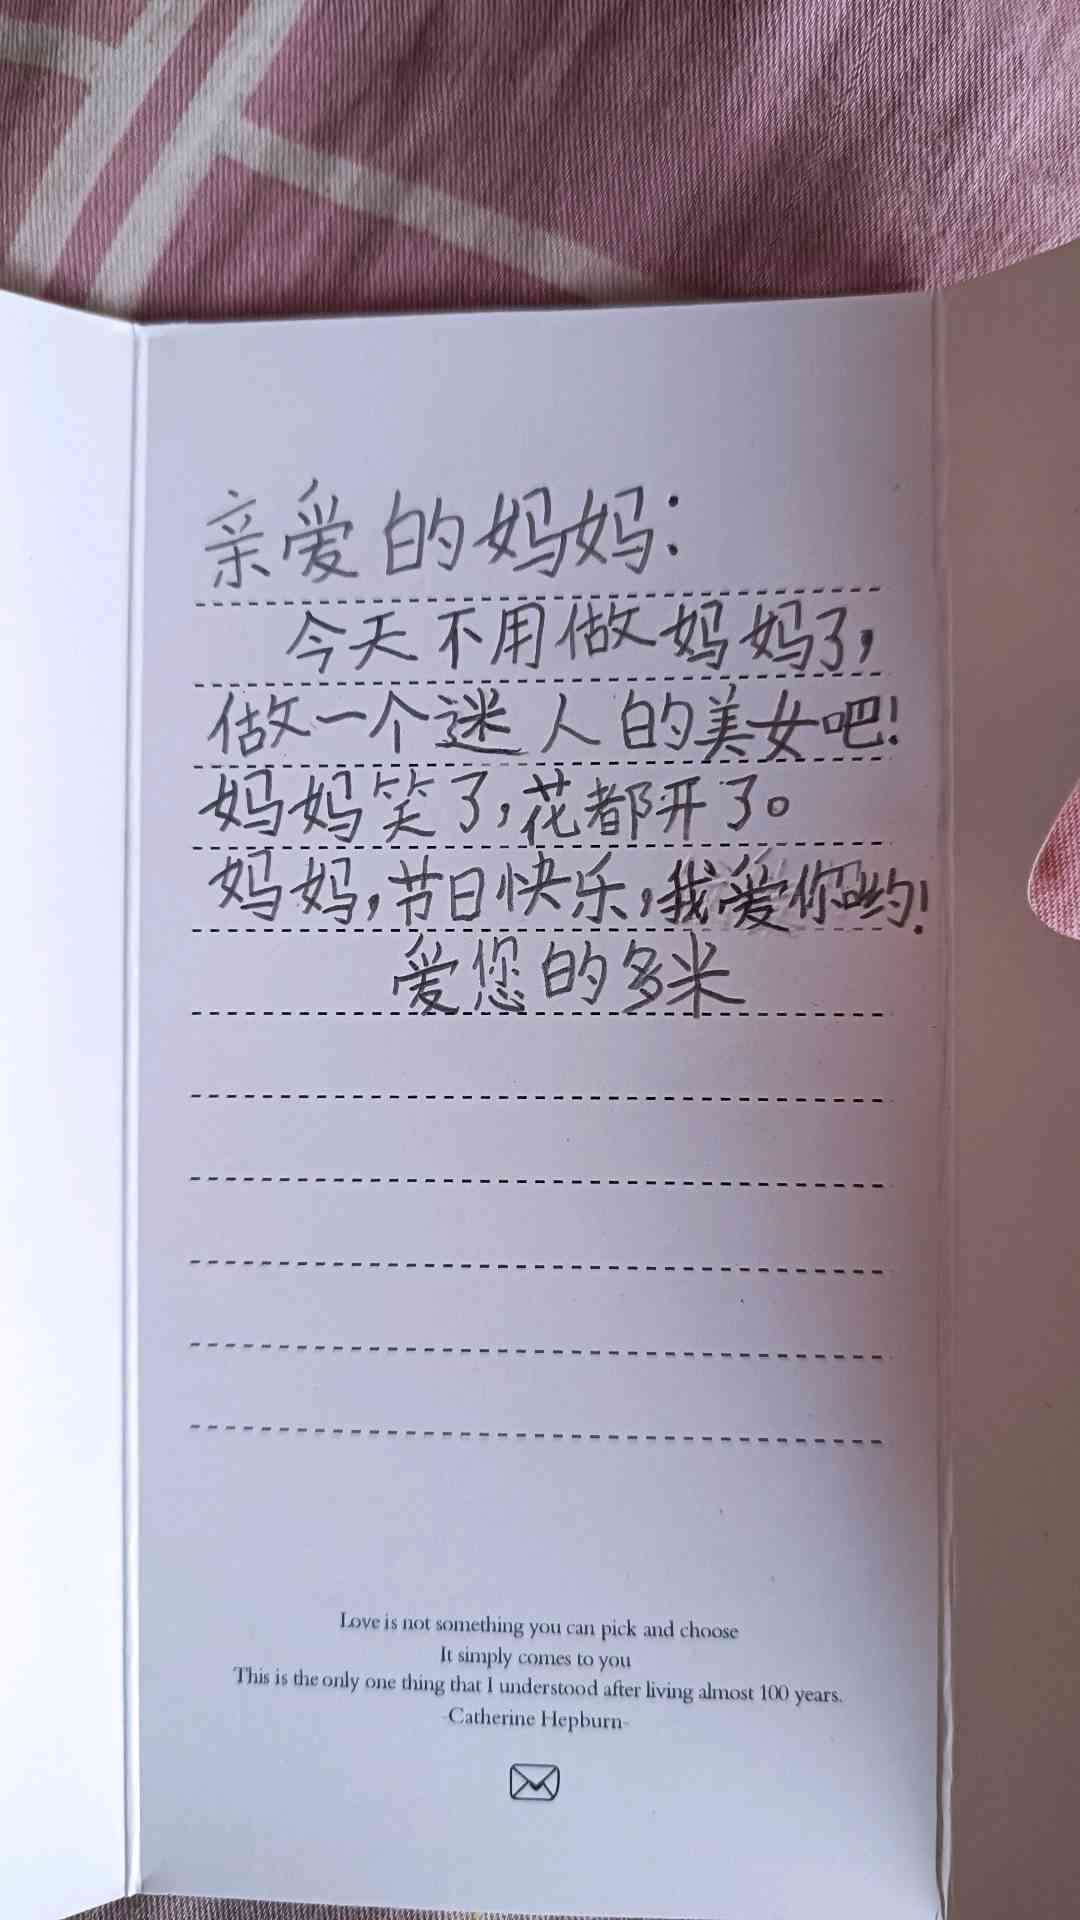 亲爱的妈妈：
今天不用做妈妈了，
做一个迷人的美女吧！
妈妈笑了，花都开了。
妈妈，节日快乐，我爱你哟！
爱您的多米
Love is not something you can pick and choose
It simply comes to you
This is the only one thing that I understood after living almost 100 years.
-Catherine Hepburn-